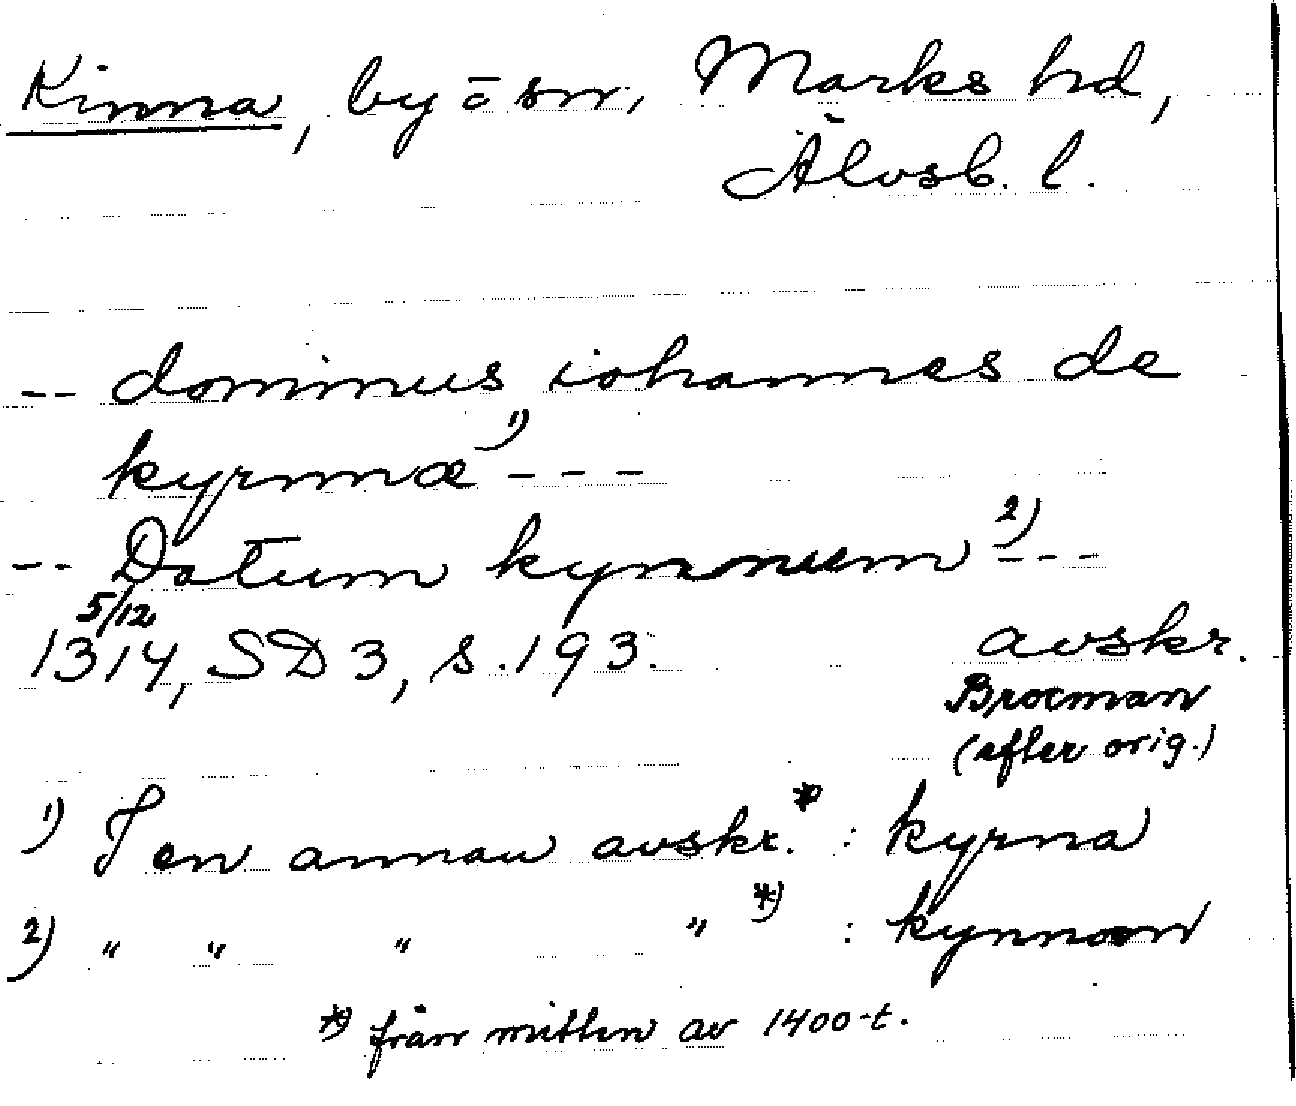 Kinna, by o sn, Marks hd,
Älvsb. l.
-- dominus iohannes de
kyrnnæ 1) ---
-- Datum kynnum 2) ---
5/12
1314, SD 3, s. 193. avskr.
Brocman
(efter orig.)
1) I en annan avskr.*) : kyrna
2) " " " " *) : kynnom
*) från mitten av 1400-t.